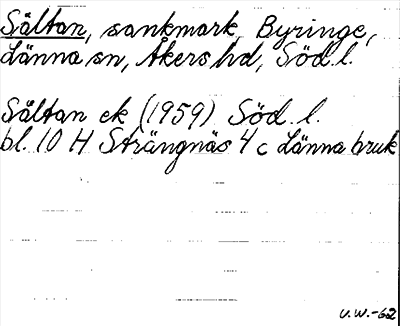 Sältan, sankmark, Byringe,
Länna sn, Åkers hd, Söd. l.
Sältan ek (1959) Söd. l.
bl. 10 H Strängnäs 4 c Länna bruk
U.W.-62